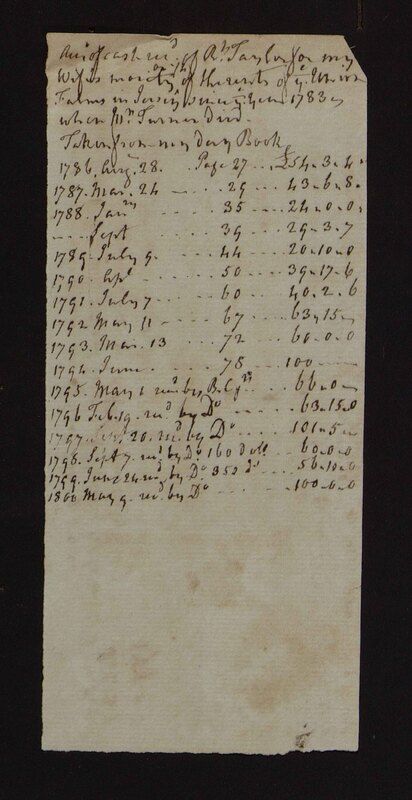 Acco. of cash recd. of Rd. Taylor for my
Wifes moiety of the rents of ye. Union
Farms in Jersey since ye. year 1783
when Mr. Turner Died.
Taken from my Day Book
1786. Augt. 28. Page 27 .. £54.3.4
1787. Mar. 24 ---- 29 ... 43.6.8
1788. Jany. ---- 35 ... 24.0.0
---- Sept ---- 39 ... 29.3.7
1789. July 9. ---- 44 ... 20.10.0
1790. Apl. ---- 50 ... 39.17.6
1791. July 7 ---- 60 ... 40.2.6
1792 May 11 ---- 67 ... 63.15
1793. Mar. 13 ---- 72 ... 60.0.0
1794. June ---- 78 .. 100
1795. May 1 recd. by ... 66.0
1796 Feb. 19. recd. by Do. ... 63.15.0
1797. 20. recd. by Do. ... 101.5
1798. Sept 7. recd. by Do. 160 doll .. 60.0.0
1799. June 24 recd. by Do. 350 do. ... 56.10.0
1800 May 9. recd. by Do. ---- 100.0.0